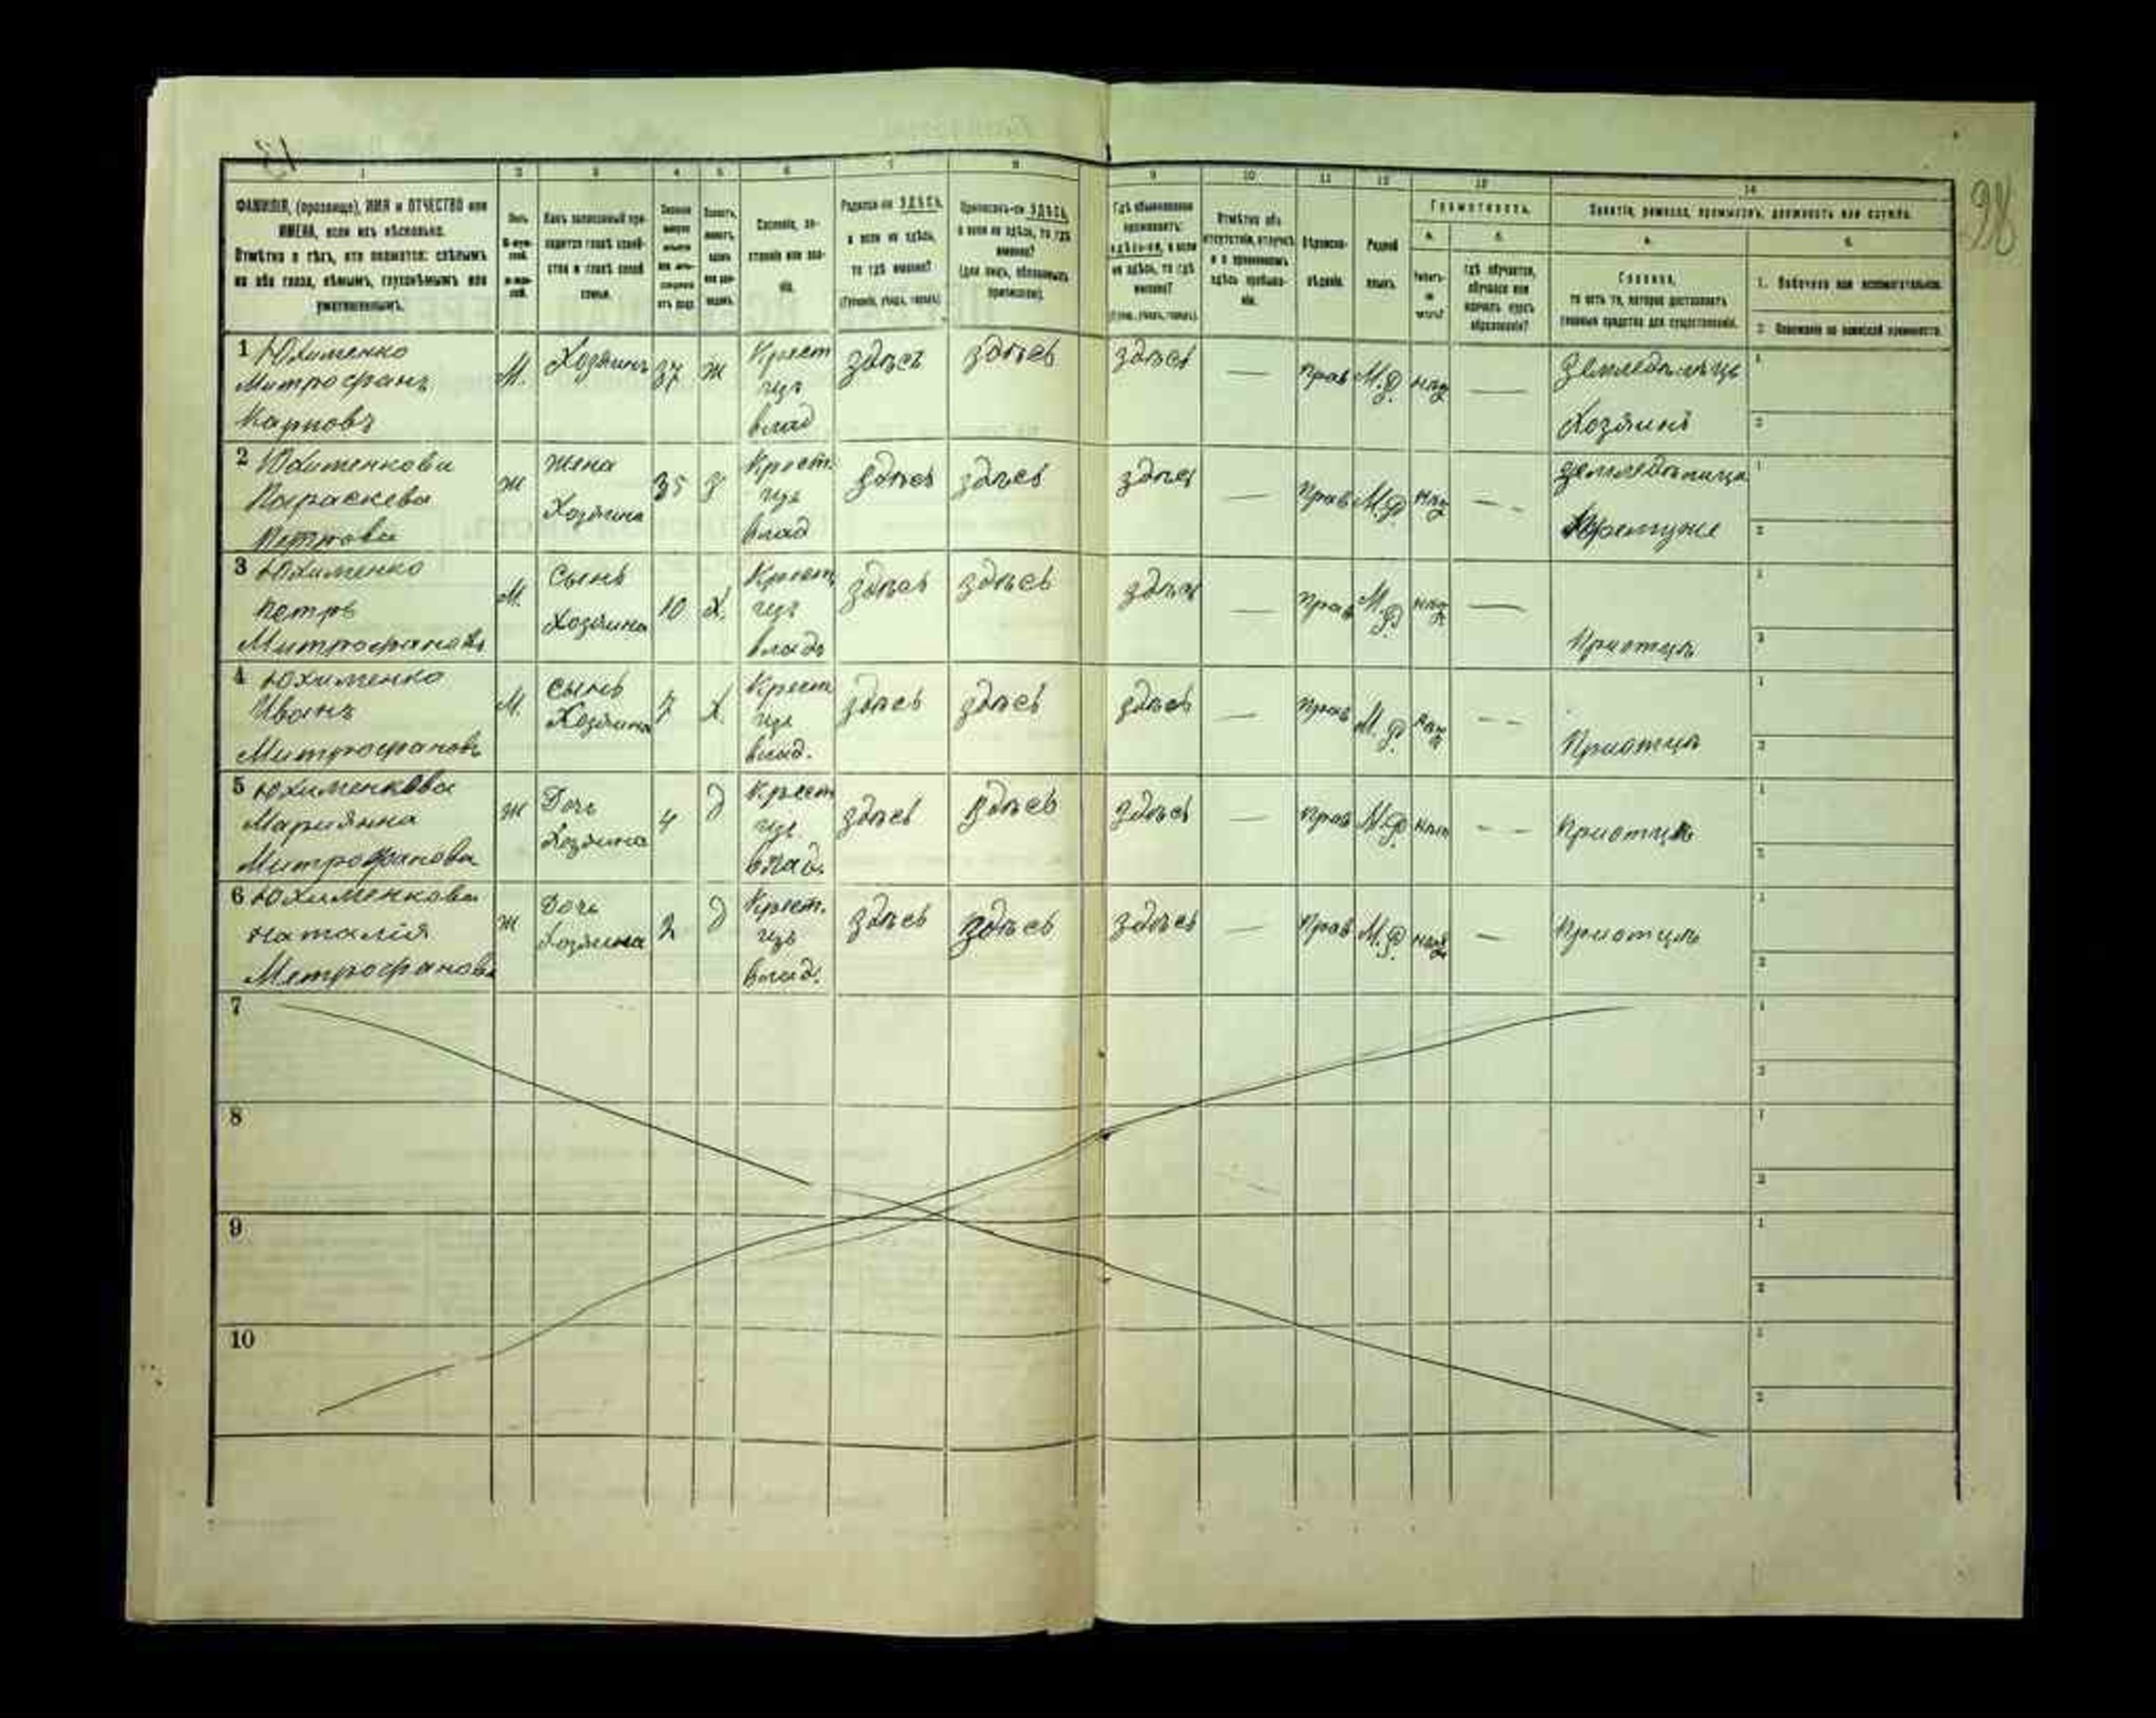 13
98
1 2 3 4 5 6 7 8 9 10 11 12 13 14
ФАМИЛІЯ, (прозвище), ИМЯ и ОТЧЕСТВО или
ИМЕНА, если ихъ нѣсколько.
Отмѣтка о тѣхъ, кто окажется: слѣпымъ
на оба глаза, нѣмымъ, глухонѣмымъ или
умалишеннымъ.
Полъ.
Какъ записанный при-
ходится главѣ хозяй-
ства и главѣ своей
семьи.
Сословіе, со-
стояніе или зва-
ніе.
Родился-ли ЗДѢСЬ,
а если не здѣсь,
то гдѣ именно?
(Губернія, уѣздъ, городъ)
Приписанъ-ли ЗДѢСЬ,
а если не здѣсь, то гдѣ
именно?
(для лицъ, обязанныхъ
припискою).
Гдѣ обыкновенно
проживаетъ:
здѣсь-ли, а если
не здѣсь, то гдѣ
именно?
(Губерн., уѣздъ, городъ).
Отмѣтка объ
отсутствіи, отлучкѣ
и о временномъ
здѣсь пребыва-
ніи.
Вѣроиспо-
вѣданіе.
Родной
языкъ.
Грамотность.
а.
б.
Умѣетъ-
ли
читать?
гдѣ обучается,
обучался или
кончилъ курсъ
образованія?
Занятіе, ремесло, промыселъ, должность или служба.
а.
б.
Главное,
то есть то, которое доставляетъ
главныя средства для существованія.
1. Побочное или вспомогательное.
2. Положеніе по воинской повинности.
1 Юхименко
Митрофанъ
Карповъ
М. Хозяинъ 37 ж Крест
изъ
влад
здѣсь здѣсь здѣсь — Прав М.Р. нѣт — Земледѣлецъ
Хозяинъ
2 Юхименкова
Параскева
Петрова
ж жена
Хозяина
35 З Крест.
изъ
влад
здѣсь здѣсь здѣсь — Прав М.Р. нѣт —
3 Юхименко
Петръ
Митрофановъ
М. Сынъ
Хозяина
10 Х. Крест
изъ
владъ
здѣсь здѣсь здѣсь — Прав М.Р. нѣт —
Приотцѣ
4 Юхименко
Иванъ
Митрофановъ
М. сынъ
Хозяина
7 Х. Крест
изъ
влад.
здѣсь здѣсь здѣсь — Прав М.Р. нѣт —
Приотцѣ
5 Юхименкова
Мариянна
Митрофанова
ж Дочь
Хозяина
4 д Крест
изъ
влад.
здѣсь здѣсь здѣсь — Прав М.Р нѣт — Приотцѣ
6 Юхименкова
Наталія
Митрофанова
ж Дочь
Хозяина
2 д Крест.
изъ
влад.
здѣсь здѣсь здѣсь — Прав М.Р. нѣт — Приотцѣ
7
8
9
10